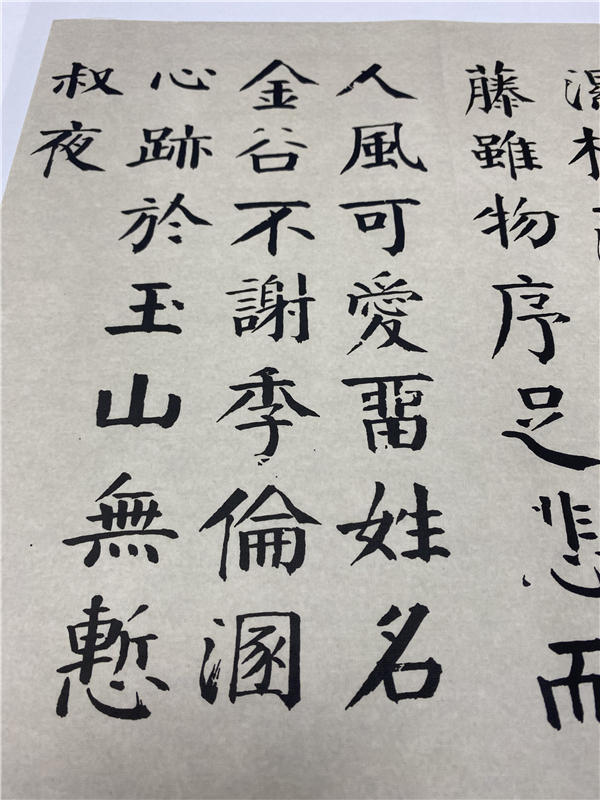 藤雖物序足悲而
人風可愛畱姓名
金谷不謝季倫溷
心跡於玉山無慙
叔夜